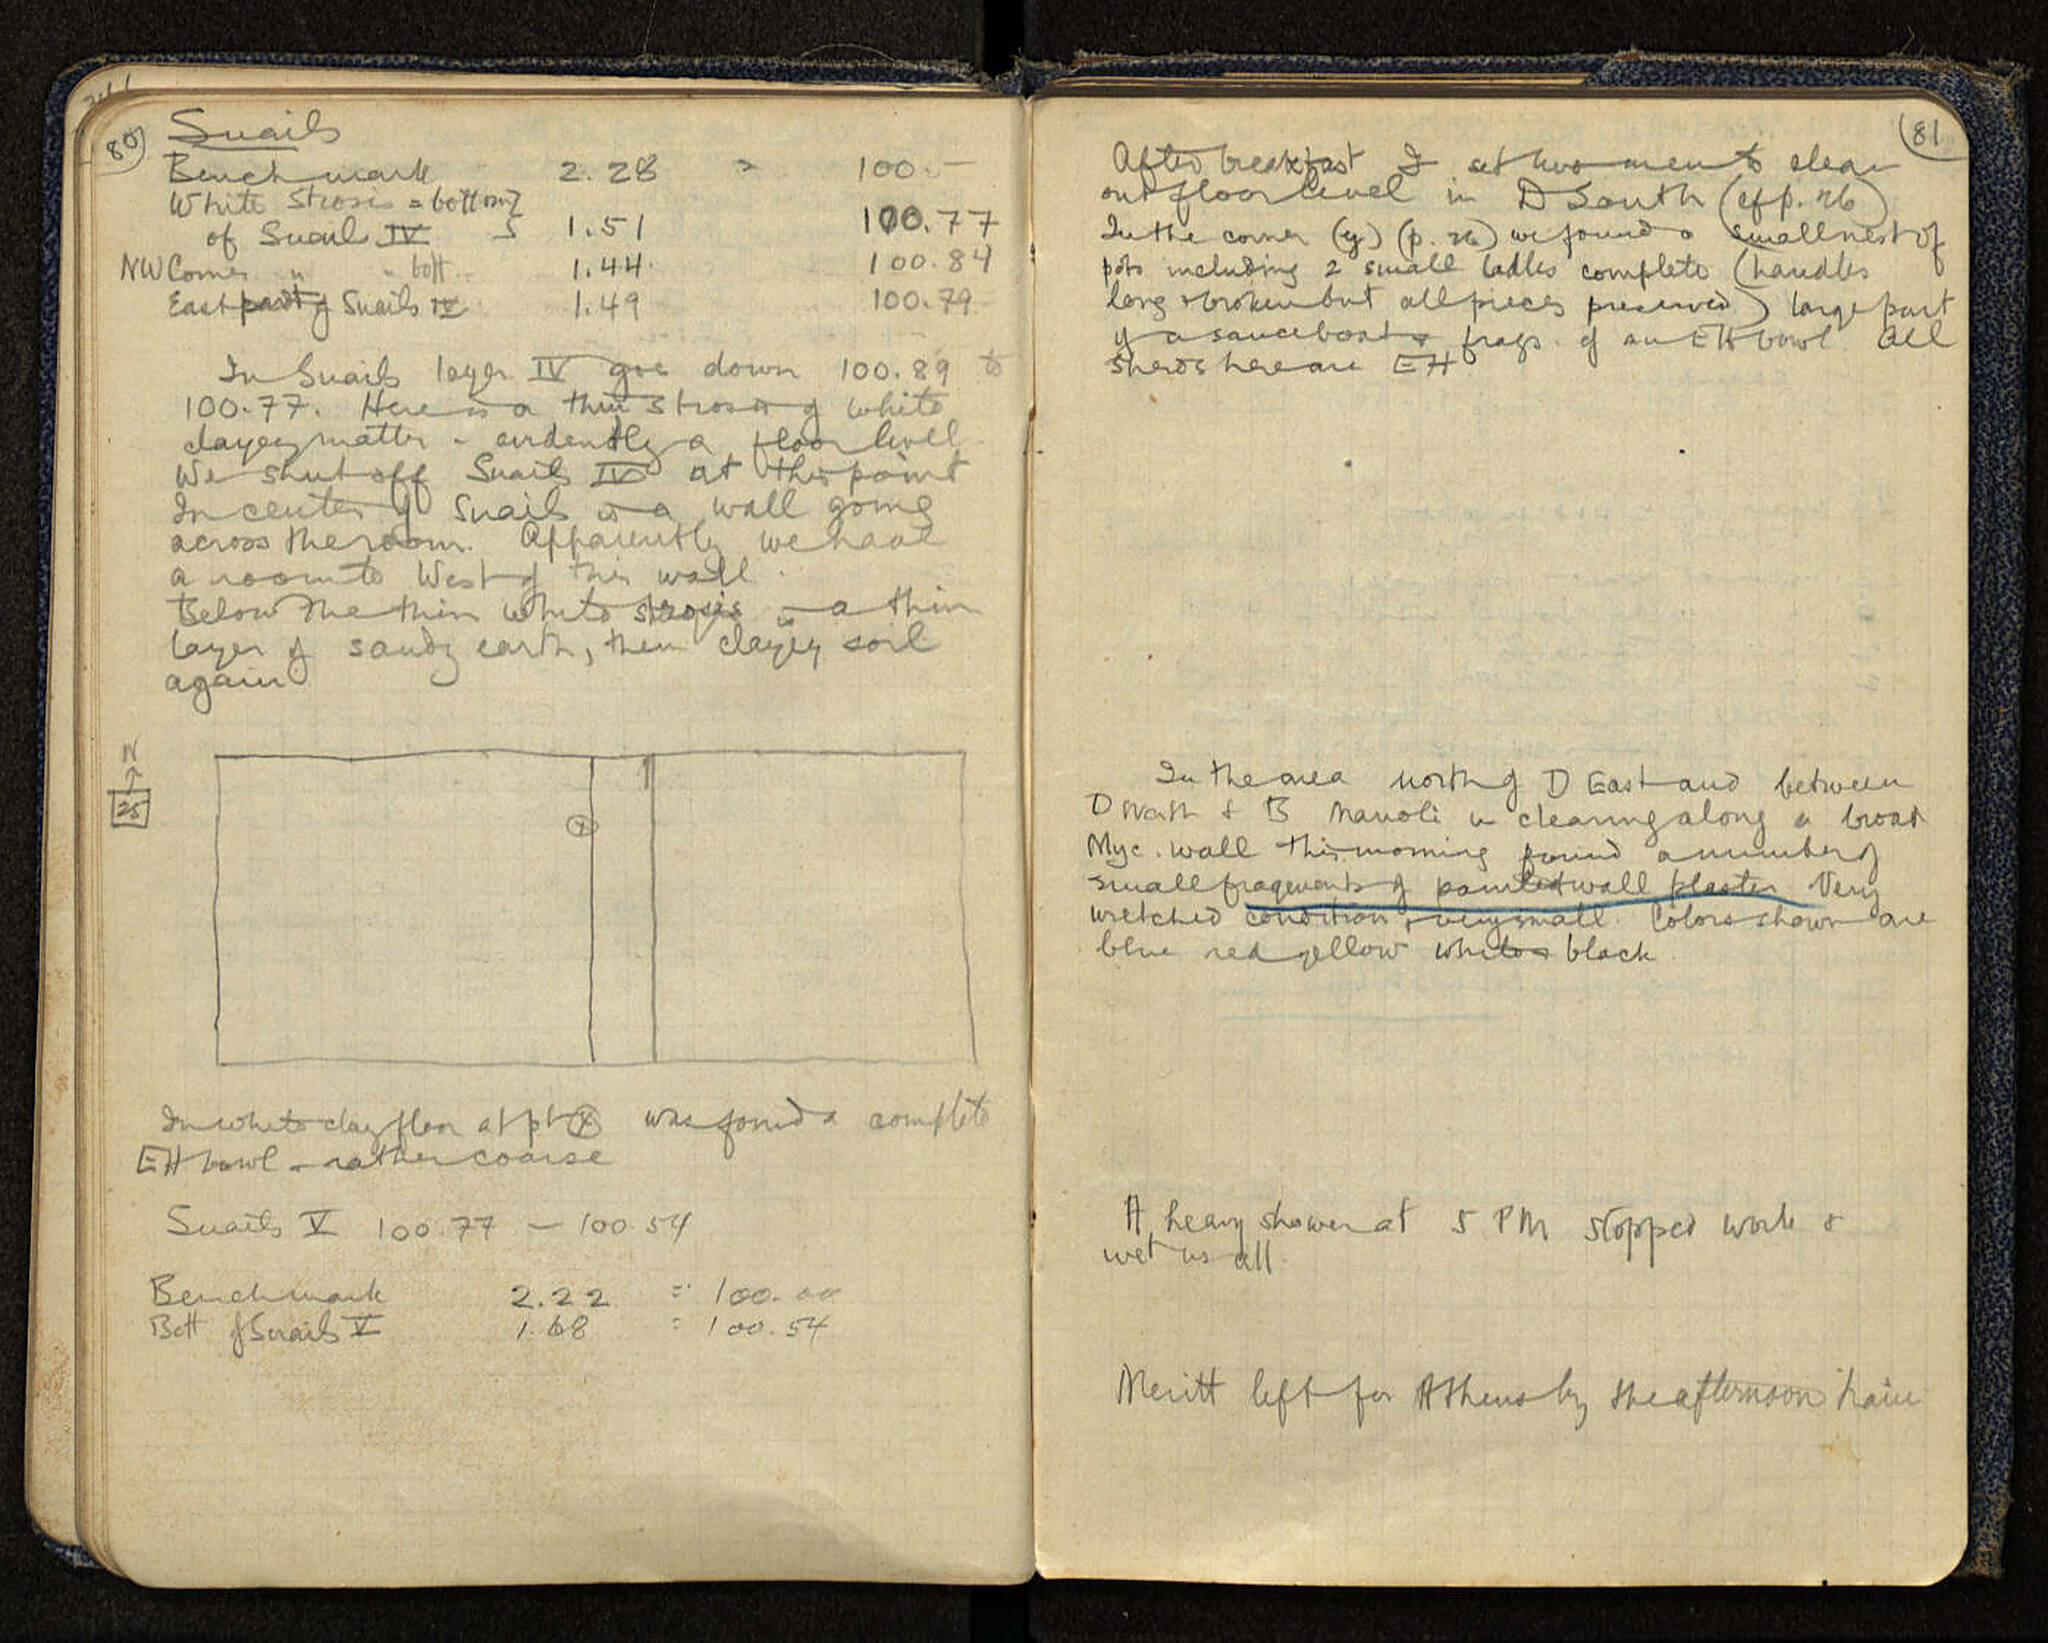 80
Snails
Benchmark 2.28 = 100.—
White Strosis = bottom }
of Snails IV } 1.51 100.77
NW Corner " " bott. 1.44. 100.84
East part of Snails IV 1.49 100.79
In Snails layer IV goes down 100.89 to
100.77. Here is a thin strosis of white
clayey matter - evidently a floor level
We shut off Snails IV at this point
In center of Snails is a wall going
across the room. Apparently we have
a room to West of this wall.
Below the thin white strosis is a thin
layer of sandy earth, then clayey soil
again
N
25
x
In white clay floor at pt x was found a complete
EH bowl - rather coarse
Snails V 100.77 — 100.54
Benchmark 2.22 = 100.00
Bott of Snails V 1.68 = 100.54
81
After breakfast I set two men to clear
out floor level in D South (cf p. 26)
In the corner (y) (p. 26) we found a small nest of
pots including 2 small ladles complete (handles
long & broken but all pieces preserved) large part
of a sauceboat & frags. of an EH bowl. All
sherds here are EH
In the area north of D East and between
D North & B Manoli in clearing along a broad
Myc. wall this morning found a number of
small fragments of painted wall plaster Very
wretched condition & very small. Colors shown are
blue red yellow white & black
A heavy shower at 5 PM stopped work &
wet us all.
Meritt left for Athens by the afternoon train